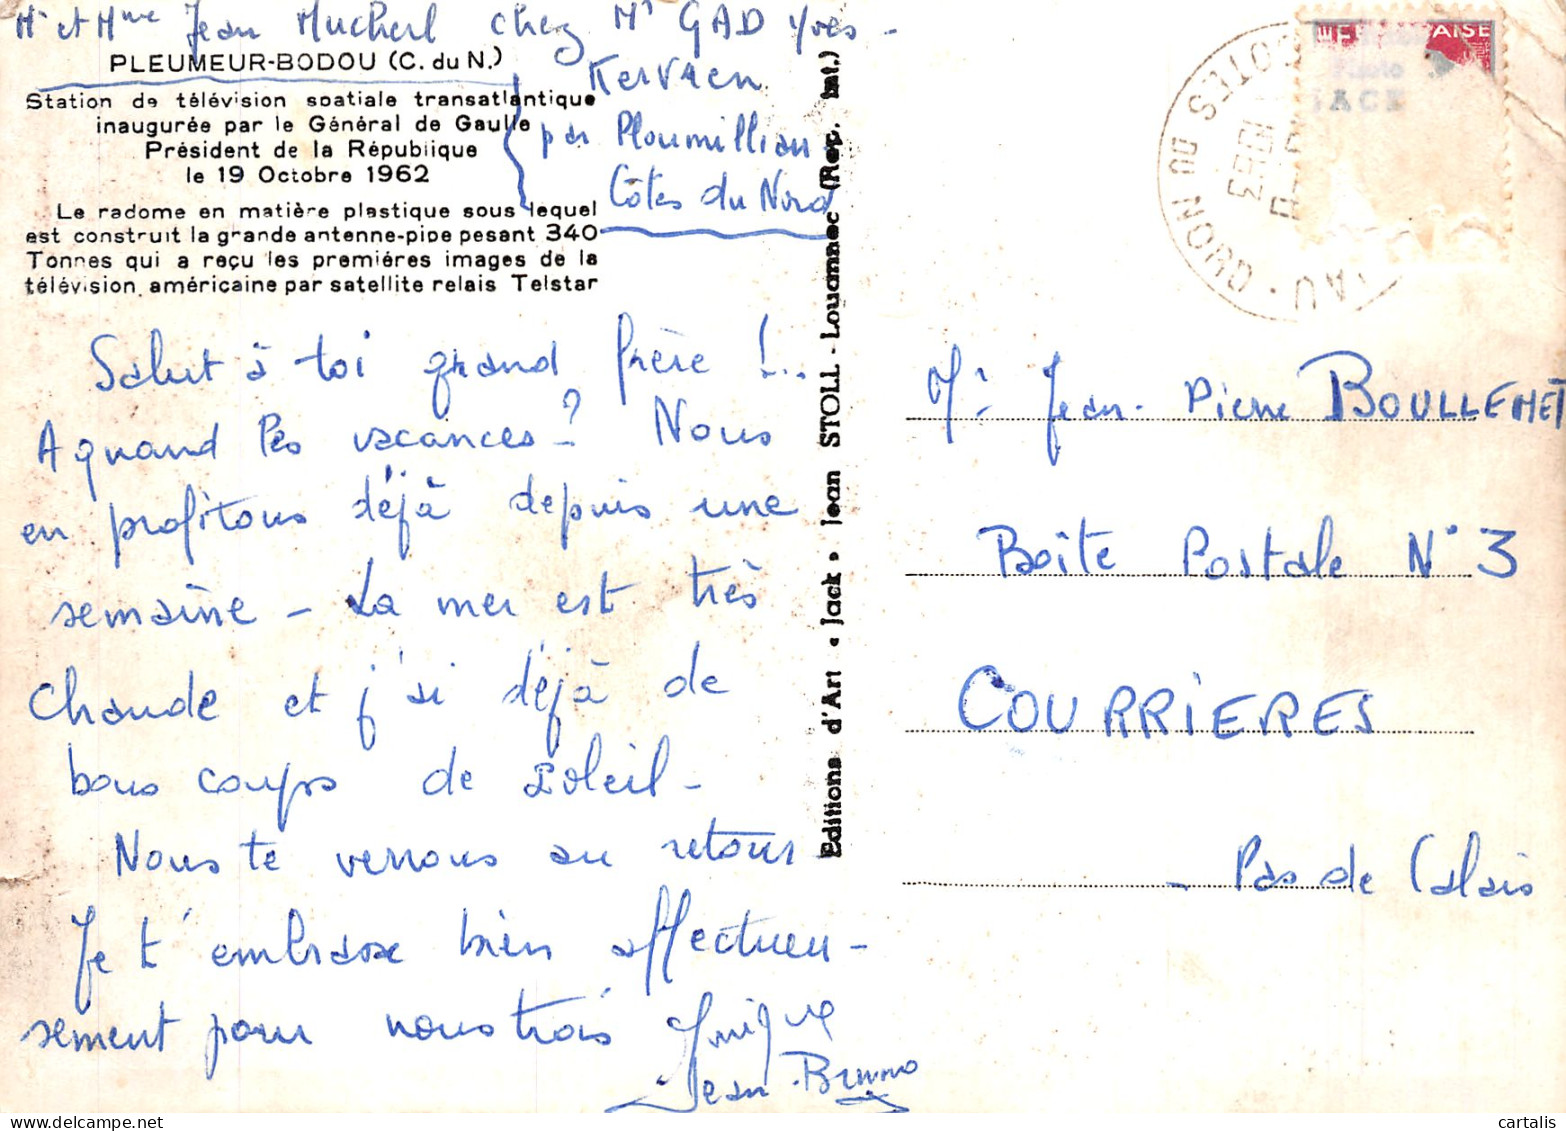 Mr et Mme Jean Mucherl chez Mr GAD Yves -
Kervaen
par Ploumilliau
Côtes du Nord
PLEUMEUR-BODOU (C. du N.)
Station de télévision spatiale transatlantique
inaugurée par le Général de Gaulle
Président de la République
le 19 Octobre 1962
Le radome en matière plastique sous lequel
est construit la grande antenne-pipe pesant 340
Tonnes qui a reçu les premières images de la
télévision américaine par satellite relais Telstar
Salut à toi grand frère !...
A quand les vacances ? Nous
en profitons déjà depuis une
semaine - La mer est très
chaude et j'ai déjà de
bons coups de soleil -
Nous te verrons au retour
Je t'embrasse bien affectueu-
sement pour nous trois
Jean Bruno
Editions d'Art « Jack » Jean STOLL - Louannec (Rep. int.)
COTES DU NORD
1963
AISE
Photo
JACK
Mr Jean-Pierre BOULLEMET
Boîte Postale N° 3
COURRIERES
- Pas de Calais
cartalis